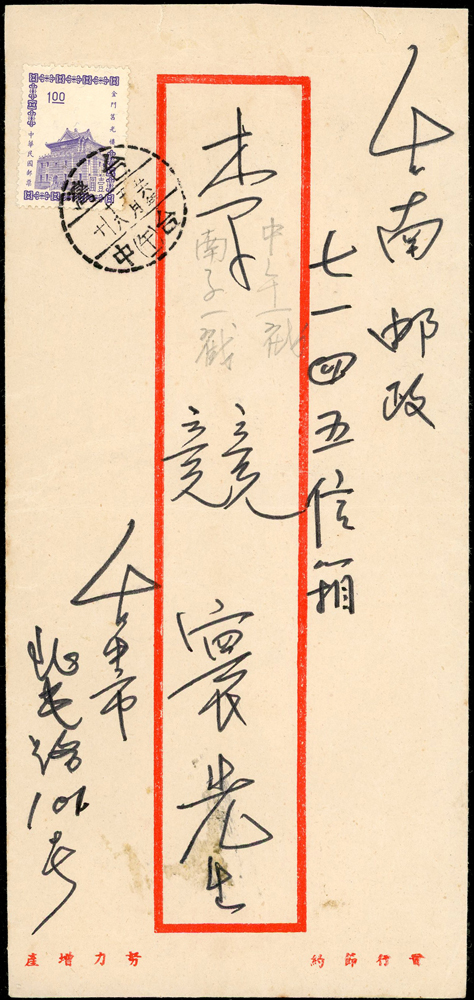 台南郵政
七一四五信箱
李競寰先生
中午一戳
南子一戳
台中市
101号
1.00
金門莒光樓
中華民國郵票
台灣
台中
(午)
實行節約
努力增產